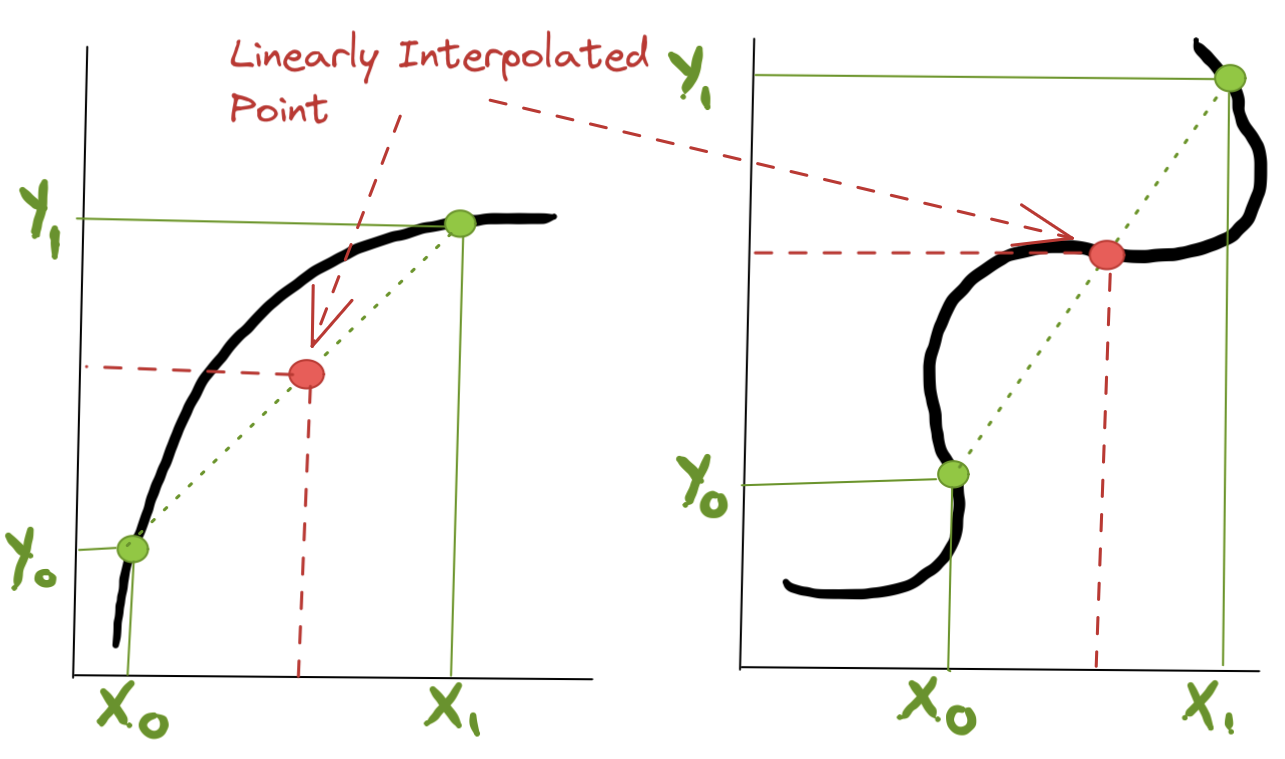 Linearly Interpolated
Point
Y1
Y0
X0
X1
Y1
Y0
X0
X1